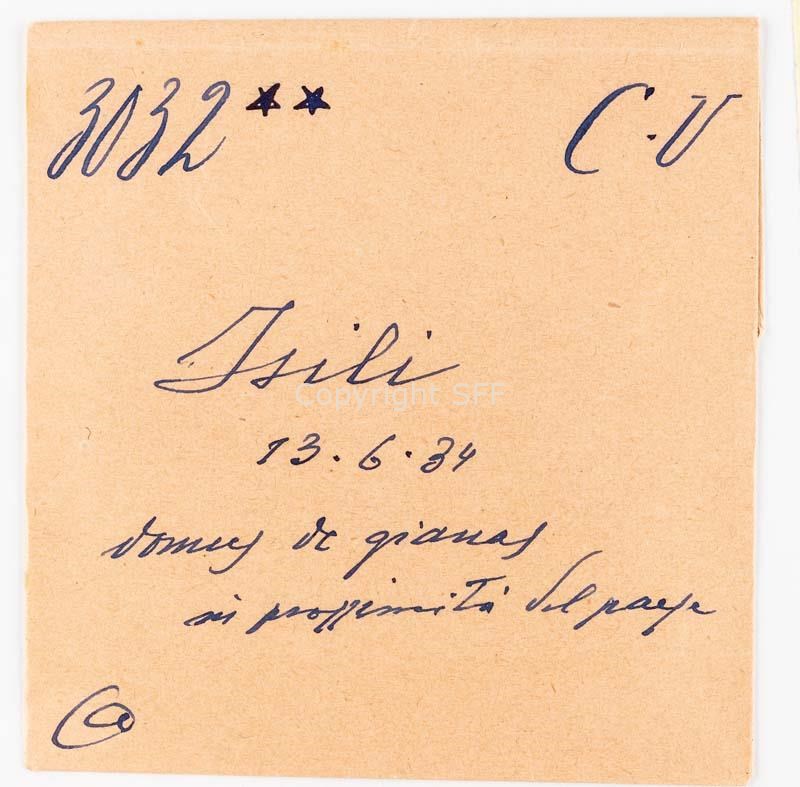 3032** C.V
Isili
Copyright SFF
13.6.34
domus de gianas
in prossimità del paese